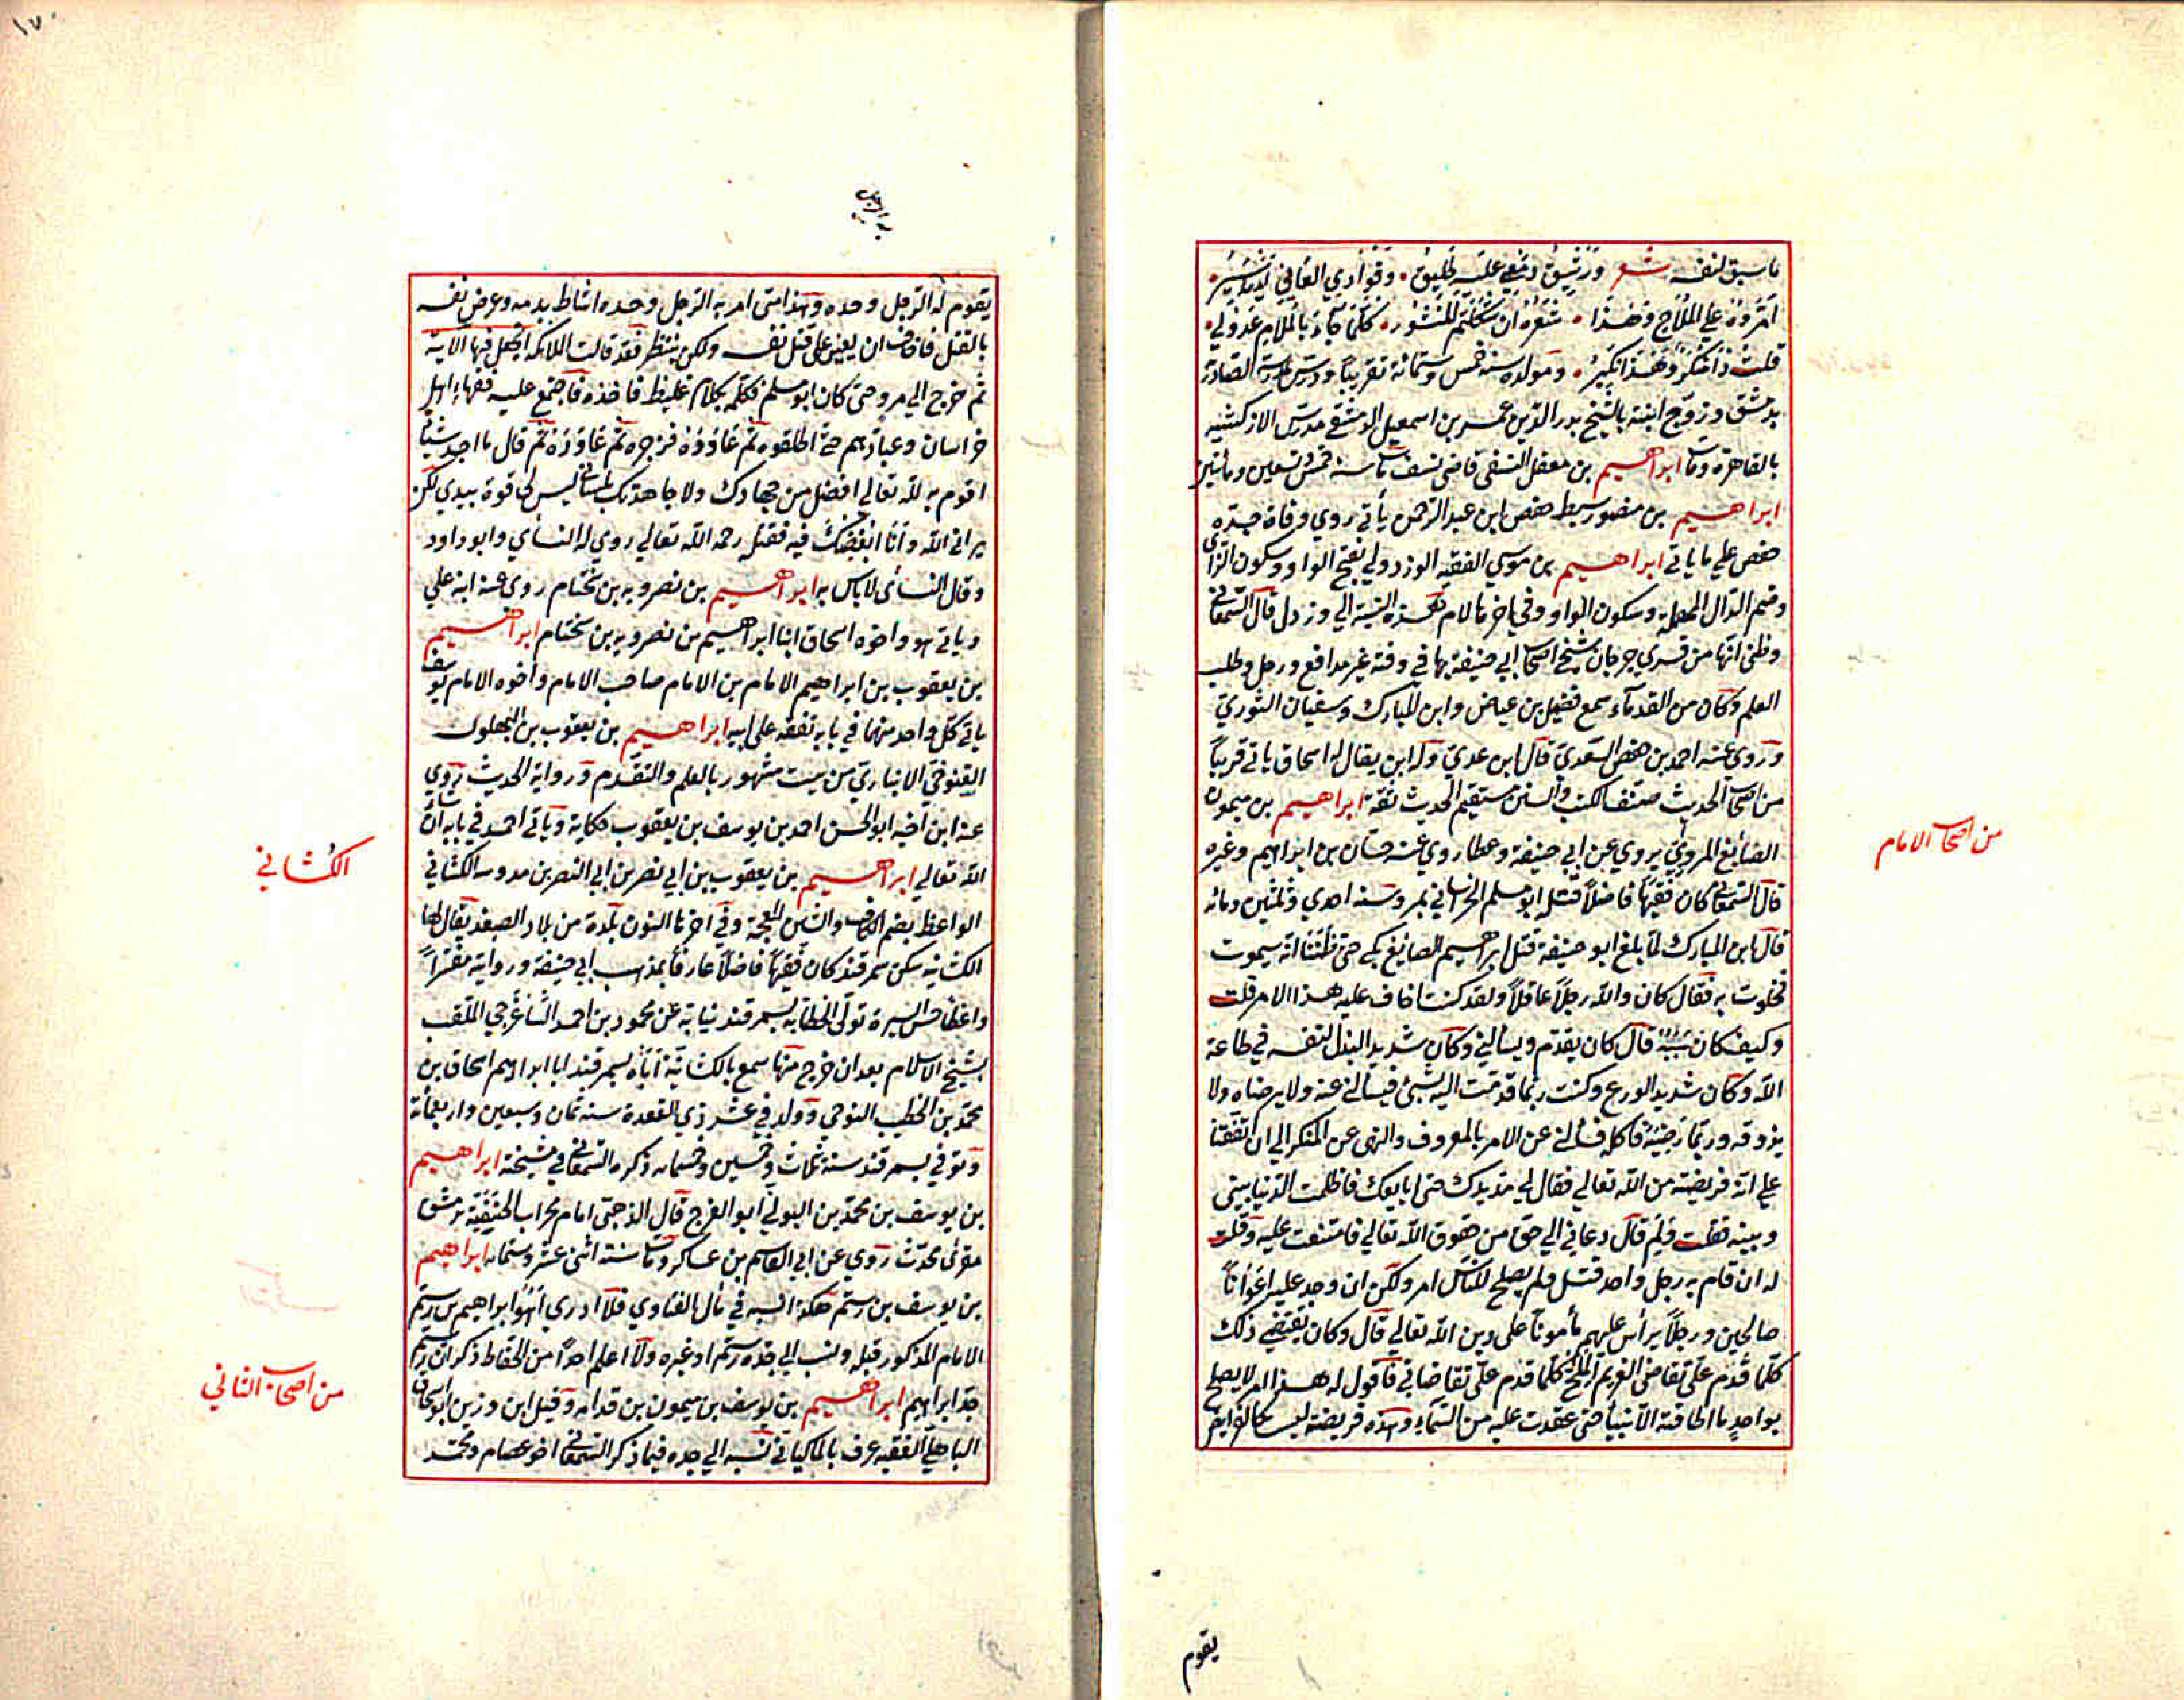 ماسبق لنفسه شعر ورشيق دمعي عليه طليق ۰ وفؤادي العاني لديه اسير ۰
امروه علي الملاح وهذا ۰ شعره ان شككتم المنشور ۰ كلما جاد بالملام عذولي ۰
قلت ذا منكر وهذا نكير ۰ ومولده سنة خمس وستمائة تقريبا ودرس بمدرسة الصادرية
بدمشق وزوج ابنته بالشيخ بدر الدين عمر بن اسمعيل الدمشقي مدرس الازكشية
بالقاهرة ومات ابراهيم بن معقل النسفي قاضي نسف مات سنة خمس تسعين ومأتين
ابراهيم بن منصور سبط حفص ابن عبد الرحمن يأتي روي وفاة جده
حفص علي ما ياتي ابراهيم بن موسي الفقيه الوزدولي بفتح الواو وسكون الزاي
وضم الدال المهملة وسكون الواو وفي اخرها لام هذه النسبة الي وزدل قال السمعاني
وظني انها من قري جرجان شيخ اصحاب ابي حنيفة بها في وقته غير مدافع ورحل وطلب
العلم وكان من القدماء سمع فضيل بن عياض وابن المبارك وسفيان الثوري
وروي عنه احمد بن حفص السعدي قال ابن عدي وله ابن يقال له اسحاق ياتي قريبا
من اصحاب الحديث صنف الكتب والسنن مستقيم الحديث ثقة ابراهيم بن ميمون
الصايغ المروزي يروي عن ابي حنيفة وعطا روي عنه حسان بن ابراهيم وغيره
قال السمعاني كان فقيها فاضلا قتله ابو مسلم الخراساني بمرو سنة احدي وثلثين ومائه
قال ابن المبارك لما بلغ ابو حنيفة قتل ابراهيم الصايغ بكي حتى ظننا انه سيموت
فخلوت به فقال كان والله رجلا عاقلا ولقد كنت اخاف عليه هذا الامر قلت
وكيف كان سببه قال كان يقدم ويسألني وكان شديد البذل لنفسه في طاعة
الله وكان شديد الورع وكنت ربما قدمت اليه بشئ فيسألني عنه ولا يرضاه ولا
يذوقه وربما رضيه فاكله فسألني عن الامر بالمعروف والنهي عن المنكر الي ان اتفقنا
علي انه فريضة من الله تعالي فقال لي مد يدك حتى ابايعك فاظلمت الدنيا بيني
وبينه فقلت ولم قال دعاني الي حق من حقوق الله تعالي فامتنعت عليه وقلت
له ان قام به رجل واحد قتل ولم يصلح للناس امر ولكن ان وجد عليه اعوانا
صالحين ورجلا يرأس عليهم مأمونا علي دين الله تعالي قال وكان يقتضي ذلك
كلما قدم علي تقاضي الغريم الملح كلما قدم علي تقاضاني فاقول له هذا امر لا يصلح
بواحد ما اطاقته الانبيأ حتي عقدت عليه من السماء وهذه فريضة ليست كالفرايض
من اصحاب الامام
يقوم
۱۷
يقوم له الرجل وحده وهذا متى امر به الرجل وحده اشاط بدمه وعرض نفسه
بالقتل فاخاف ان يعين علي قتل نفسه ولكن ينتظر فقد قالت الملائكة اتجعل فيها الآية
ثم خرج الي مرو حتى كان ابو مسلم فكلمه بكلام غليظ فاخذه فاجتمع عليه فقهاء اهل
خراسان وعبادهم حتى اطلقوه ثم عاوده فزجره ثم عاوده ثم قال ما اجد شيئا
اقوم به لله تعالي افضل من جهادك ولاجاهدنك بلساني ليس لي قوة بيدي لكن
يراني الله وانا ابغضك فيه فقتله رحمه الله تعالي روي له النسأي وابو داود
وقال النسأى لا باس به ابراهيم بن نصرويه بن سختام روى عنه ابنه علي
وياتي هو واخوه اسحاق ابنا ابراهيم بن نصرويه بن سختام ابراهيم
بن يعقوب بن ابراهيم الامام بن الامام صاحب الامام واخوه الامام يوسف
ياتي كل واحد منهما في بابه تفقه علي ابيه ابراهيم بن يعقوب بن البهلول
التنوخي الانباري من بيت مشهور بالعلم والتقدم ورواية الحديث روي
عنه ابن اخيه ابو الحسن احمد بن يوسف بن يعقوب حكاية وياتي احمد في بابه ان شاء
الله تعالي ابراهيم بن يعقوب بن ابي نصر بن ابي النصر بن مدوسه الكشاني
الواعظ بضم الكاف والشين المعجمة وفي اخرها النون بلدة من بلاد الصغد يقال لها
الكشانيه سكن سمرقند كان فقيها فاضلا عارفا بمذهب ابي حنيفة وروايته مفسرا
واعظا حسن السيرة تولي الخطابه بسمرقند نيابة عن محمود بن احمد الساغرجي الملقب
بشيخ الاسلام بعد ان خرج منها سمع بالكشانية اباه بسمرقند ابا ابراهيم اسحاق بن
محمد بن الخطيب النوحي وولد في عشر ذي القعدة سنة ثمان وسبعين واربعمائة
وتوفي بسمرقند سنة ثلاث وخمسين وخمسمائه ذكره السمعاني في مشيخته ابراهيم
بن يوسف بن محمد بن البوني ابو الفرج قال الذهبي امام محراب الحنفية بدمشق
مقرئ محدث روي عن ابي القاسم بن عساكر ومات سنة اثني عشر وستمائه ابراهيم
بن يوسف بن رستم هكذا نسبه في مأل الفتاوي فلا ادري اهو ابراهيم بن رستم
الامام المذكور قبله ونسب الي جده رستم او غيره ولا اعلم احدا من الحفاظ ذكر ان رستم
جد ابراهيم ابراهيم بن يوسف بن ميمون بن قدامه وقيل ابن رزين ابو اسحاق
الباهلي الفقيه عرف بالماكياني نسبه الي جده فيما ذكر السمعاني اخو عصام ومحمد
الكشاني
من اصحاب الثاني